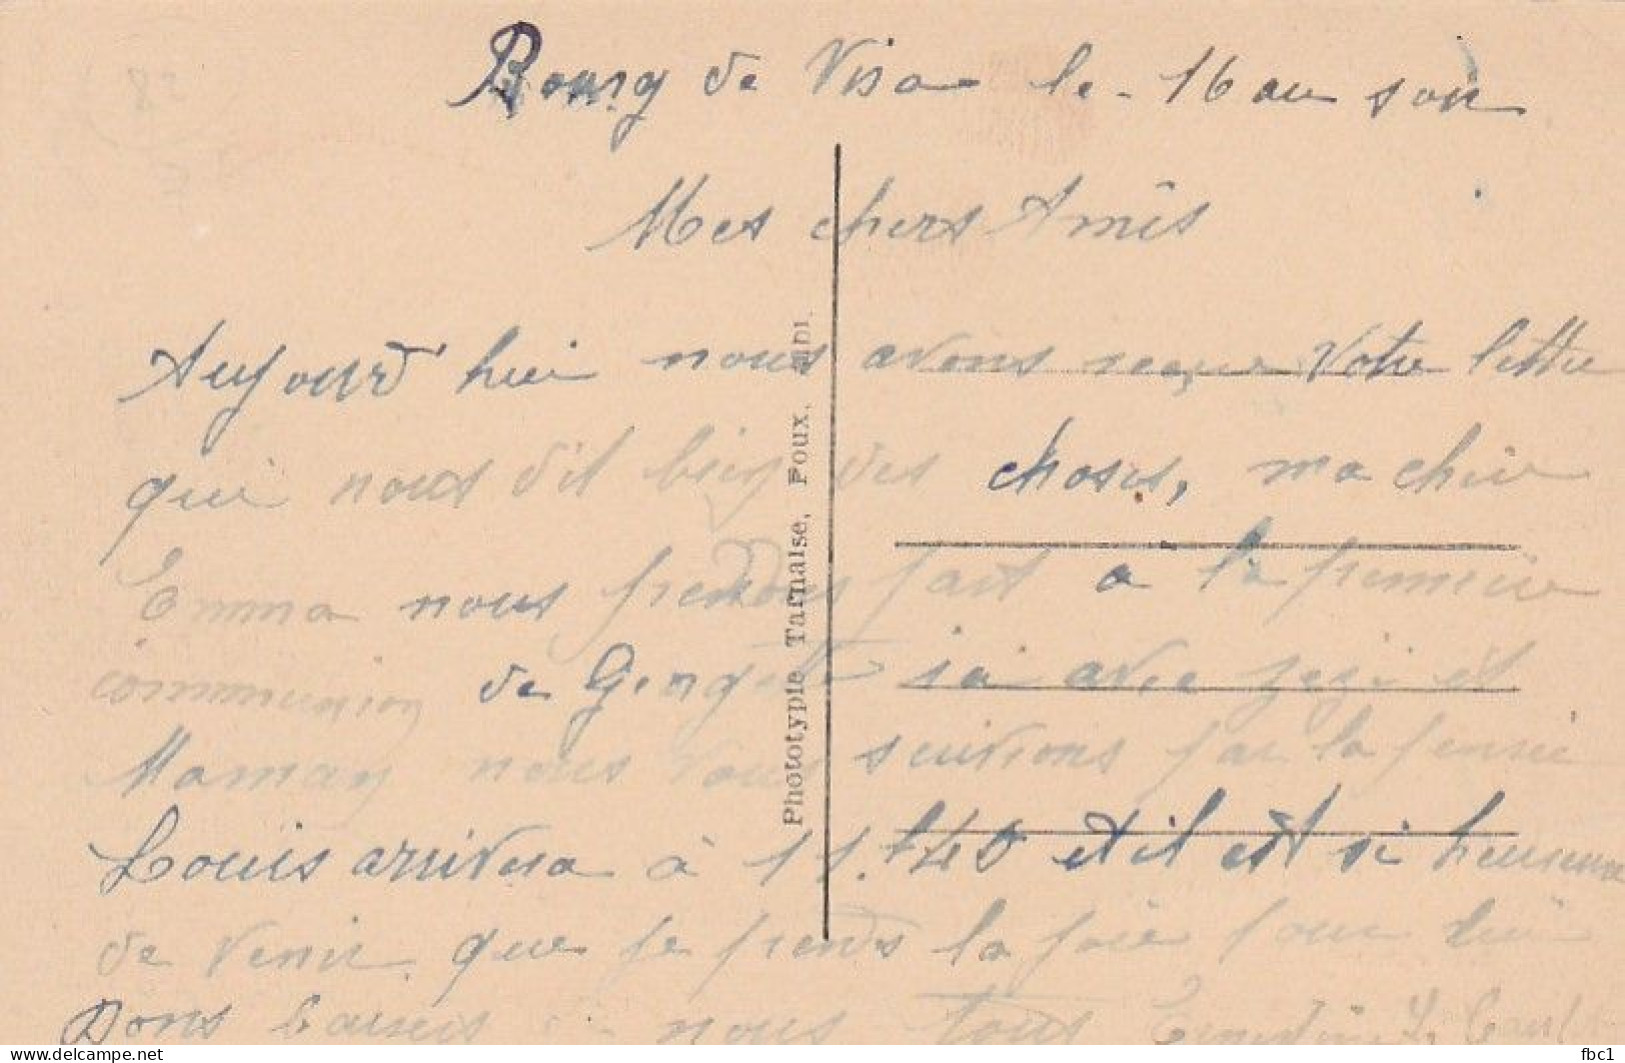 Bourg de Visa le 16 au soir
Mes chers Amis
Aujourd'hui nous avons reçue votre lettre
qui nous dit bien des choses, ma chère
Emma nous prendons part a la première
communion de Georgette ici avec pepi et
Maman nous vous suivrons par la pensée
Louis arrivera à 11 h40 et il est si heureux
de venir que je prends la joie pour lui
Bons baisers à nous tous
Phototypie Tarnaise, Poux, Albi.
delcampe.net
fbc1